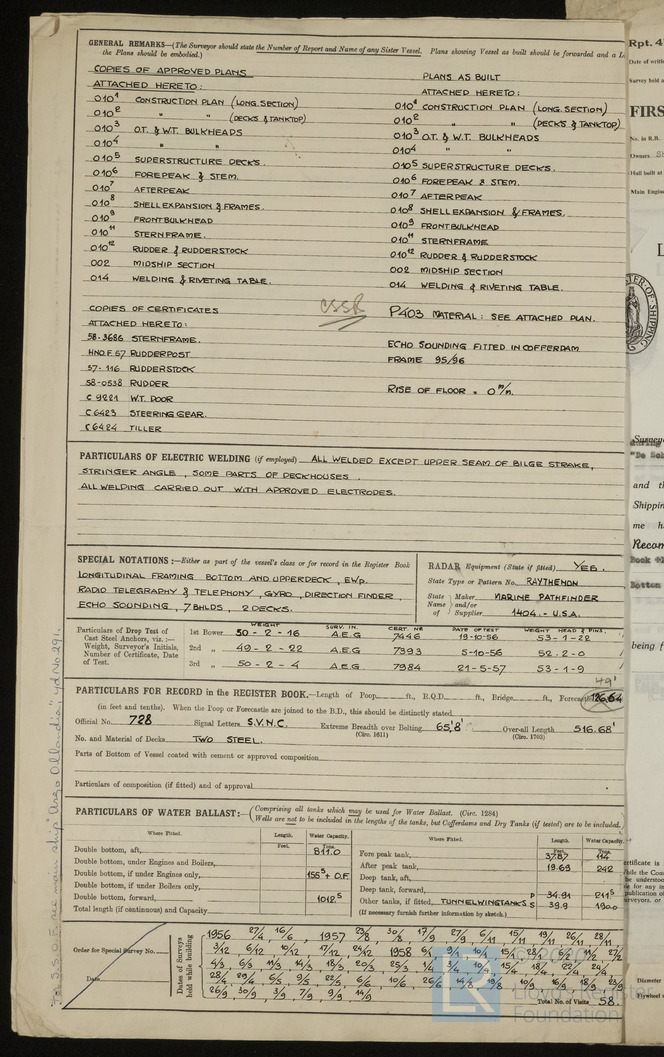 GENERAL REMARKS—(The Surveyor should state the Number of Report and Name of any Sister Vessel. Plans showing Vessel as built should be forwarded and a
the Plans should be embodied.)
COPIES OF APPROVED PLANS
ATTACHED HERETO:
010¹ CONSTRUCTION PLAN (LONG. SECTION)
010² " " (DECKS & TANKTOP)
010³ O.T. & W.T. BULKHEADS
010⁴ " "
010⁵ SUPERSTRUCTURE DECKS.
010⁶ FOREPEAK & STEM.
010⁷ AFTERPEAK
010⁸ SHELL EXPANSION & FRAMES.
010⁹ FRONTBULKHEAD
010¹¹ STERNFRAME.
010¹² RUDDER & RUDDERSTOCK
002 MIDSHIP SECTION
014 WELDING & RIVETING TABLE.
PLANS AS BUILT
ATTACHED HERETO:
010¹ CONSTRUCTION PLAN (LONG. SECTION)
010² " " (DECKS & TANKTOP)
010³ O.T. & W.T. BULKHEADS
010⁴ " "
010⁵ SUPERSTRUCTURE DECKS.
010⁶ FOREPEAK & STEM.
010⁷ AFTERPEAK
010⁸ SHELL EXPANSION & FRAMES.
010⁹ FRONTBULKHEAD
010¹¹ STERNFRAME
010¹² RUDDER & RUDDERSTOCK
002 MIDSHIP SECTION
014 WELDING & RIVETING TABLE.
COPIES OF CERTIFICATES
ATTACHED HERETO:
58-3686 STERNFRAME.
HNO.F.67 RUDDERPOST
57-116 RUDDERSTOCK
58-0538 RUDDER
C 9221 W.T. DOOR
C 6423 STEERING GEAR.
C 6424 TILLER
CSSR
P403 MATERIAL: SEE ATTACHED PLAN.
ECHO SOUNDING FITTED IN COFFERDAM
FRAME 95/96
RISE OF FLOOR = 0 m/m.
PARTICULARS OF ELECTRIC WELDING (if employed) ALL WELDED EXCEPT UPPER SEAM OF BILGE STRAKE,
STRINGER ANGLE, SOME PARTS OF DECKHOUSES.
ALL WELDING CARRIED OUT WITH APPROVED ELECTRODES.
SPECIAL NOTATIONS:—Either as part of the vessel's class or for record in the Register Book
LONGITUDINAL FRAMING BOTTOM AND UPPERDECK, EWp.
RADIO TELEGRAPHY & TELEPHONY, GYRO, DIRECTION FINDER,
ECHO SOUNDING, 7 BHLDS, 2 DECKS.
RADAR Equipment (State if fitted) YES.
State Type or Pattern No. RAYTHEON
State Name of Maker and/or Supplier MARINE PATHFINDER
1404. - U.S.A.
Particulars of Drop Test of Cast Steel Anchors, viz.:— Weight, Surveyor's Initials, Number of Certificate, Date of Test.
WEIGHT SURV. IN. CERT. NR DATE OF TEST WEIGHT HEAD & PINS.
1st Bower 50 - 2 - 16 A.E.G 7446 19-10-56 53-1-22
2nd " 49 - 2 - 22 A.E.G 7393 5-10-56 52.2-0
3rd " 50 - 2 - 4 A.E.G 7984 21-5-57 53-1-9
49'
PARTICULARS FOR RECORD in the REGISTER BOOK.—Length of Poop ft., R.Q.D. ft., Bridge ft., Forecastle
(in feet and tenths). When the Poop or Forecastle are joined to the B.D., this should be distinctly stated
Official No. 728 Signal Letters S.V.N.C. Extreme Breadth over Belting 65,8' Over-all Length 516.68'
(Circ. 1611) (Circ. 1703)
No. and Material of Decks TWO STEEL.
Parts of Bottom of Vessel coated with cement or approved composition
Particulars of composition (if fitted) and of approval
PARTICULARS OF WATER BALLAST:—(Comprising all tanks which may be used for Water Ballast. (Circ. 1284)
Wells are not to be included in the lengths of the tanks, but Cofferdams and Dry Tanks (if tested) are to be included.
Where Fitted. Length. Water Capacity.
Feet. Tons.
Double bottom, aft, 811.0
Double bottom, under Engines and Boilers,
Double bottom, if under Engines only, 155⁵ + O.F.
Double bottom, if under Boilers only,
Double bottom, forward, 1012⁵
Total length (if continuous) and Capacity
Where Fitted. Length. Water Capacity.
Fore peak tank, 37.87 114
After peak tank, 19.69 242
Deep tank, aft,
Deep tank, forward,
P 34.91 211⁵
Other tanks, if fitted, TUNNELWINGTANKS S 39.9 190.0
(If necessary furnish further information by sketch.)
Order for Special Survey No.
Date
Dates of Surveys held while building
1956 27/4 16/6 1957
3/12 6/12 10/12 17/12 24/12 1958
4/3 6/3 11/3 14/3 18/3 20/3 25/3
26/9 30/9 3/9 7/9 9/9 14/9
Total No. of Visits 58.
Lloyd's Register
Foundation
Rpt. 4
FIRS
No. in R.B.
Owners
Hull built at
Main Engine